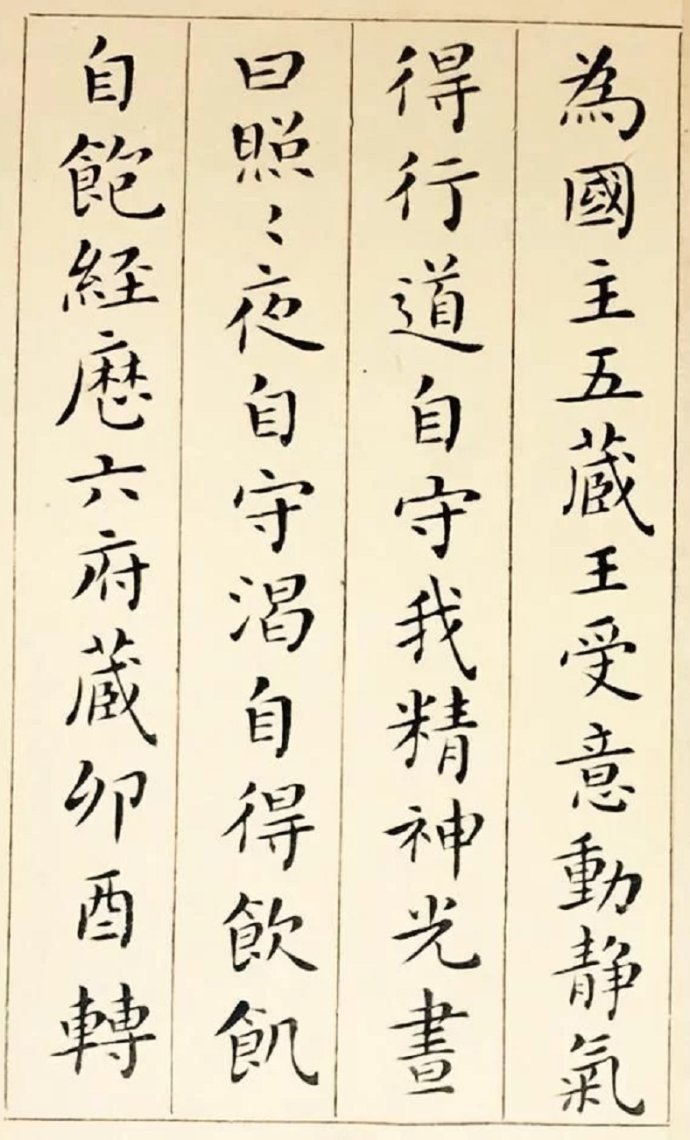 為國主五蔵王受意動静氣
得行道自守我精神光晝
日照〻夜自守渇自得飲飢
自飽経歴六府蔵卯酉轉